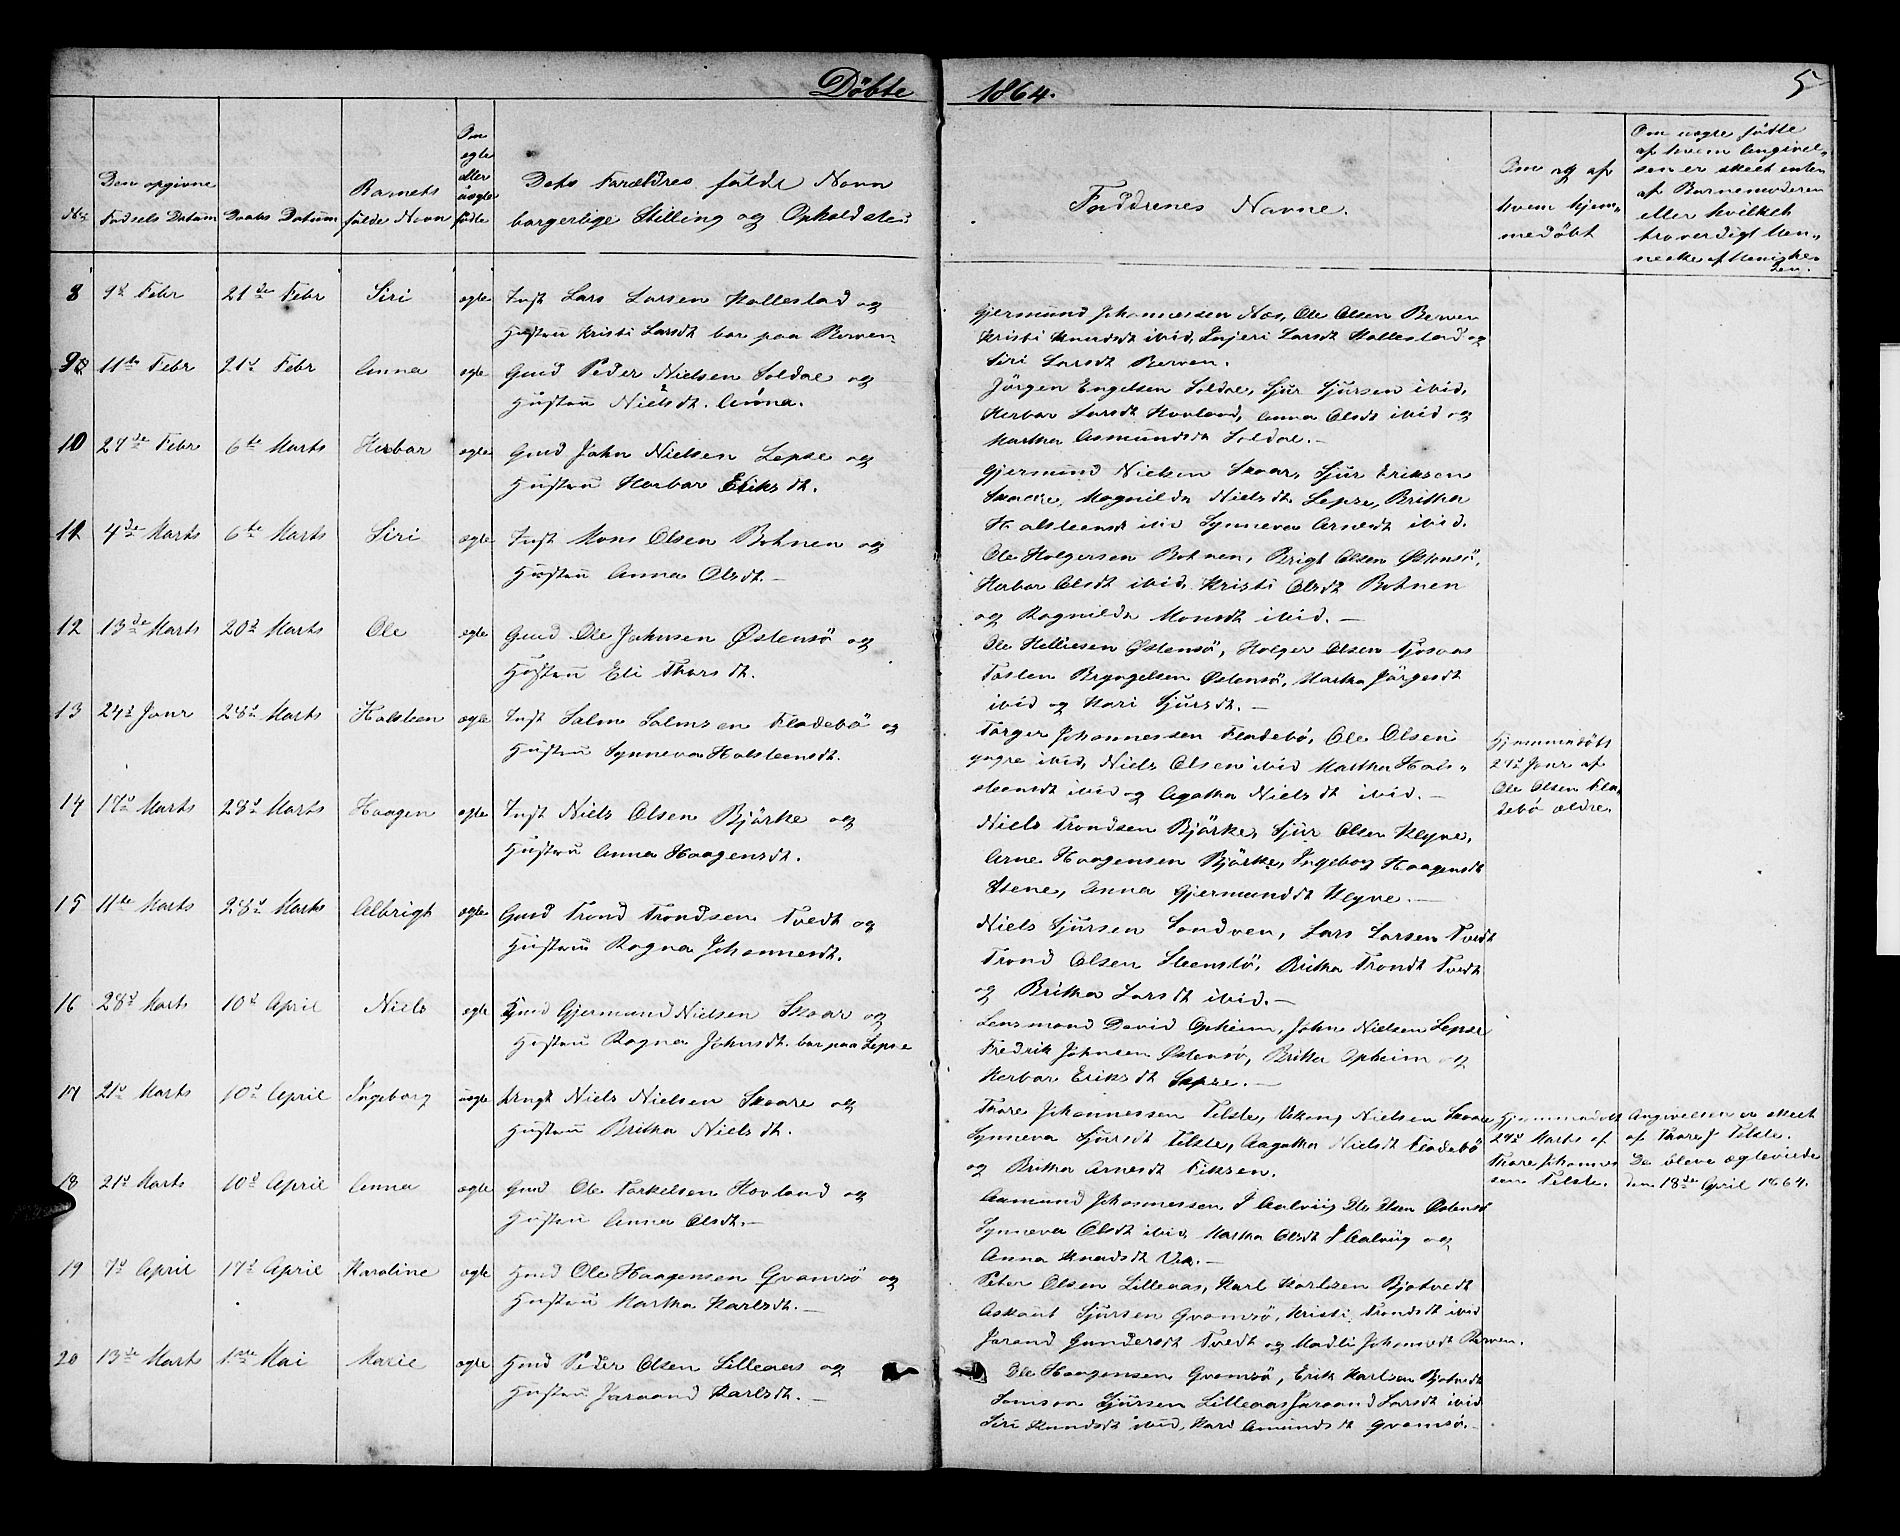 Döbte 1864. 5
No. Den opgivne Födsels Datum Daabs Datum Barnets fulde Navn Om ægte eller uægte födte Dets Forældres fulde Navn borgerlige Stilling og Opholdsted
Faddrenes Navne.
Om og af hvem hjemmedöbt
Om uægte födte af hvem Angivelsen er skeet enten af Barnemoderen eller hvilket troverdigt Menneske af Menigheden.
8 9d Febr 21de Febr Siri ægte Inst Lars Larsen Kollestad og
Hustru Kristi Larsdt bor paa Berven
Gjermund Johannessen Aas, Ole Olsen Berven
Kristi Knudsdt ibid, Injeri Larsdt Kollestad og
Siri Larsdt Berven.
9 11te Febr 21d Febr Anna ægte Gmd Peder Nielsen Soldal og
Hustru Nielsdt. Anna.
Jörgen Engelsen Soldal, Sjur Sjursen ibid,
Herbor Larsdt Hovland, Anna Olsdt ibid og
Martha Asmundsdt Soldal.-
10 27de Febr 6te Marts Herbor ægte Gmd John Nielsen Lepse og
Hustru Herbor Eriksdt.
Gjermund Nielsen Skaar, Sjur Eriksen
Skaare, Magnilda Nielsdt Lepse, Britha
Halsteensdt ibid Synneva Arnedt ibid.
11 4de Marts 6te Marts Siri ægte Inst Mons Olsen Botnen og
Hustru Anna Olsdt.-
Ole Holgersen Botnen, Brigt Olsen Östensö,
Herbor Olsdt ibid, Kristi Olsdt Botnen
og Ragnilda Monsdt ibid.-
12 13de Marts 20d Marts Ole ægte Gmd Ole Johnsen Östensö og
Hustru Eli Thorsdt.
Ole Helliesen Östensö, Holger Olsen Tjosaas
Tosten Bryngelsen Östensö, Martha Jörgensdt
ibid og Kari Sjursdt.-
13 24d Janr 28d Marts Halsteen ægte Inst Salm Salmsen Fladebö og
Hustru Synneva Halsteensdt.
Torger Johannessen Fladebö, Ole Olsen
yngre ibid, Niels Olsen ibid Martha Hals-
steensdt ibid og Agatha Nielsdt ibid.-
Hjemmedöbt
24d Janr af
Ole Olsen Fla-
debö ældre.
14 17d Marts 28d Marts Haagen ægte Inst Niels Olsen Björke og
Hustru Anna Haagensdt.
Niels Trondsen Björke, Sjur Olsen Klyve,
Arne Haagensen Björke, Ingeborg Haagensdt
Stene, Anna Gjermunddt Klyve.-
15 11te Marts 28d Marts Albrigt ægte Gmd Trond Trondsen Tvedt og
Hustru Ragna Johannesdt.
Niels Sjursen Sandven, Lars Larsen Tvedt
Trond Olsen Steenstö, Britha Trondt Tvedt
og Britha Larsdt ibid.-
16 28d Marts 10d April Niels ægte Gmd Gjermund Nielsen Skaar og
Hustru Ragna Johnsdt. bor paa Lepse
Lensmand David Opheim, John Nielsen Lepse
Fredrik Johnsen Östensö, Britha Opheim og
Herbor Eriksdt Lepse.-
17 21d Marts 10d April Ingeborg uægte Ungk Niels Nielsen Skaare og
Hustru Britha Nielsdt.
Thore Johannessen Telste, Hakon Nielsen Skaare
Synneva Sjursdt Telste, Aagatha Nielsdt Fladebö
og Britha Arnesdt Fiksen.
Hjemmedöbt
24d Marts af
Thore Johannes
sen Telste.
Angivelsen er skeet
af Thore J Telste.
De bleve ægteviede
den 18de April 1864.
18 21d Marts 10d April Anna ægte Gmd Ole Torkelsen Hovland og
Hustru Anna Olsdt.-
Aamund Johannessen I Aalvig Ole Olsen Östensö
Synneva Olsdt ibid, Martha Olsdt I Aalvig og
Anna Knudsdt Vik.-
19 7d April 17d April Karoline ægte Hmd Ole Haagensen Qvamsö og
Hustru Martha Karlsdt.-
Peter Olsen Lilleaas, Karl Karlsen Bjotvedt
Askout Sjursen Qvamsö, Kristi Trondsdt ibid
Jorand Gundersdt Tvedt og Madli Johansdt Berven.
20 13de Marts 1ste Mai Marie ægte Hmd Peder Olsen Lilleaas og
Hustru Joraand Karlsdt.-
Ole Haagensen Qvamsö, Erik Karlsen Bjotvedt
Samson Sjursen Lilleaas Joraand Larsdt ibid
Siri Knudsdt ibid, Kari Amundsdt Qvamsö.-